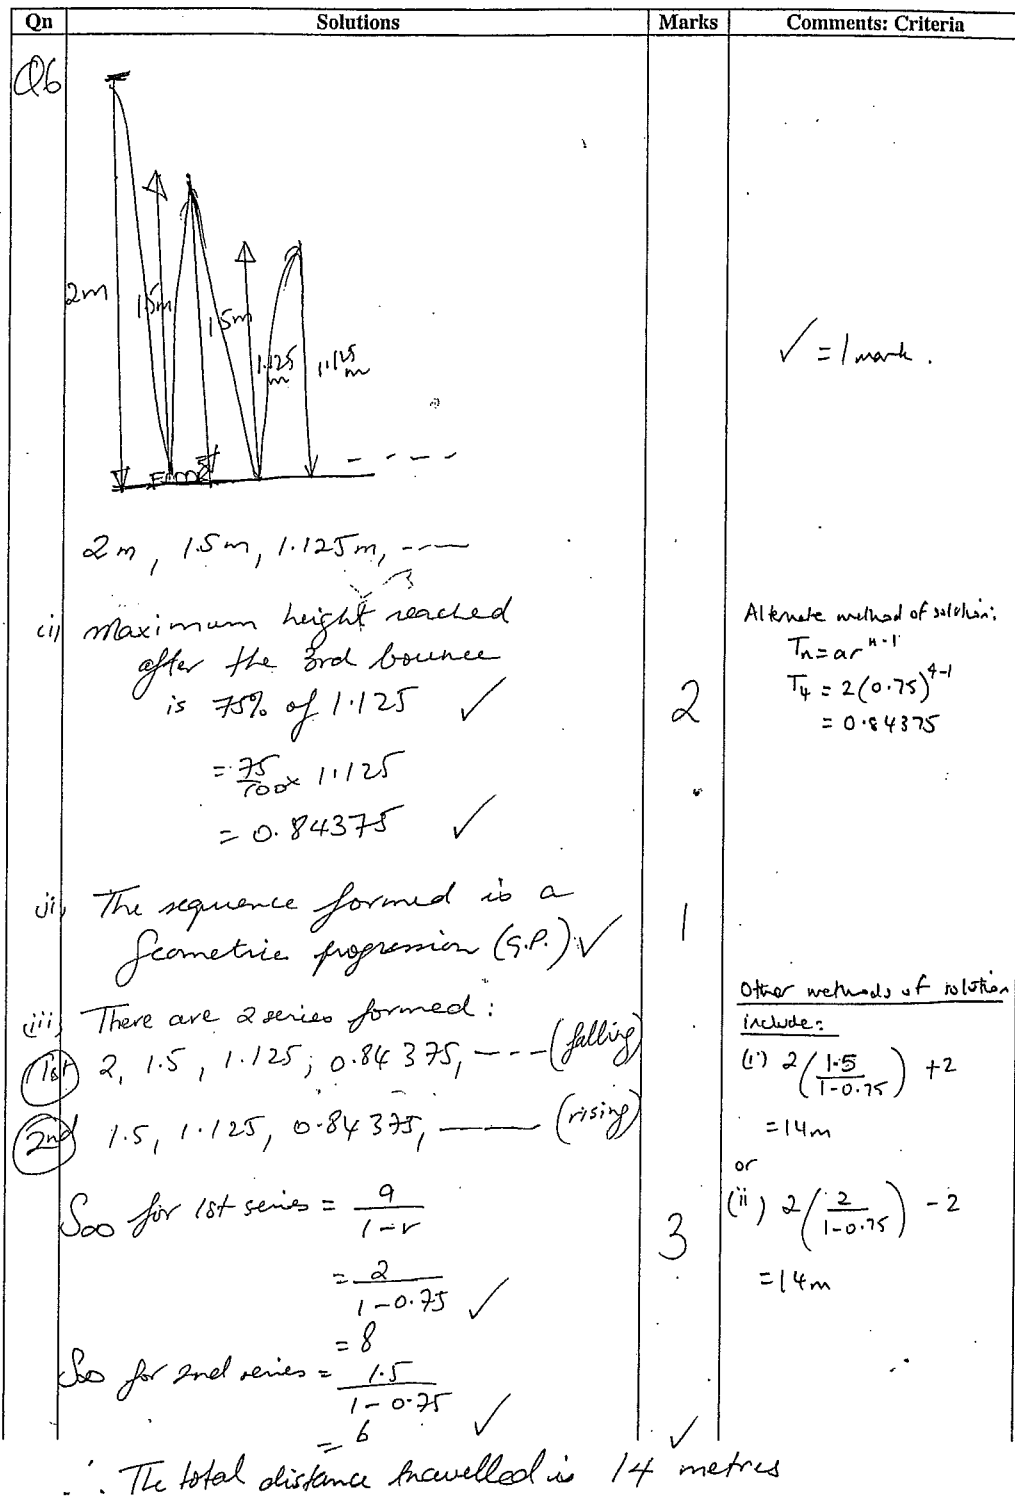 Qn Solutions Marks Comments: Criteria
Q6
2m
1.5m
1.5m
1.125 m
1.125 m
Floor
- - - -
✓ = 1 mark.
2m, 1.5m, 1.125m, ----
(i) Maximum height reached
after the 3rd bounce
is 75% of 1.125 ✓
= 75/100 × 1.125
= 0.84375 ✓
2
Alternate method of solution:
Tn = ar^(n-1)
T4 = 2(0.75)^(4-1)
= 0.84375
(ii) The sequence formed is a
Geometric progression (G.P.) ✓
1
(iii) There are 2 series formed:
(1st) 2, 1.5, 1.125, 0.84375, --- (falling)
(2nd) 1.5, 1.125, 0.84375, ——— (rising)
S∞ for 1st series = a/(1-r)
= 2/(1-0.75) ✓
= 8
S∞ for 2nd series = 1.5/(1-0.75)
= 6 ✓
3
✓
Other methods of solution
include:
(i) 2(1.5/(1-0.75)) + 2
= 14m
or
(ii) 2(2/(1-0.75)) - 2
= 14m
∴ The total distance travelled is 14 metres